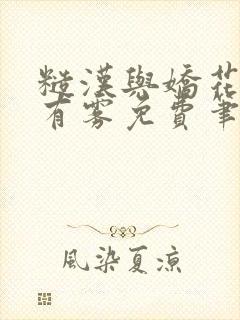 糙漢與嬌花
有霧免費筆
風染夏涼